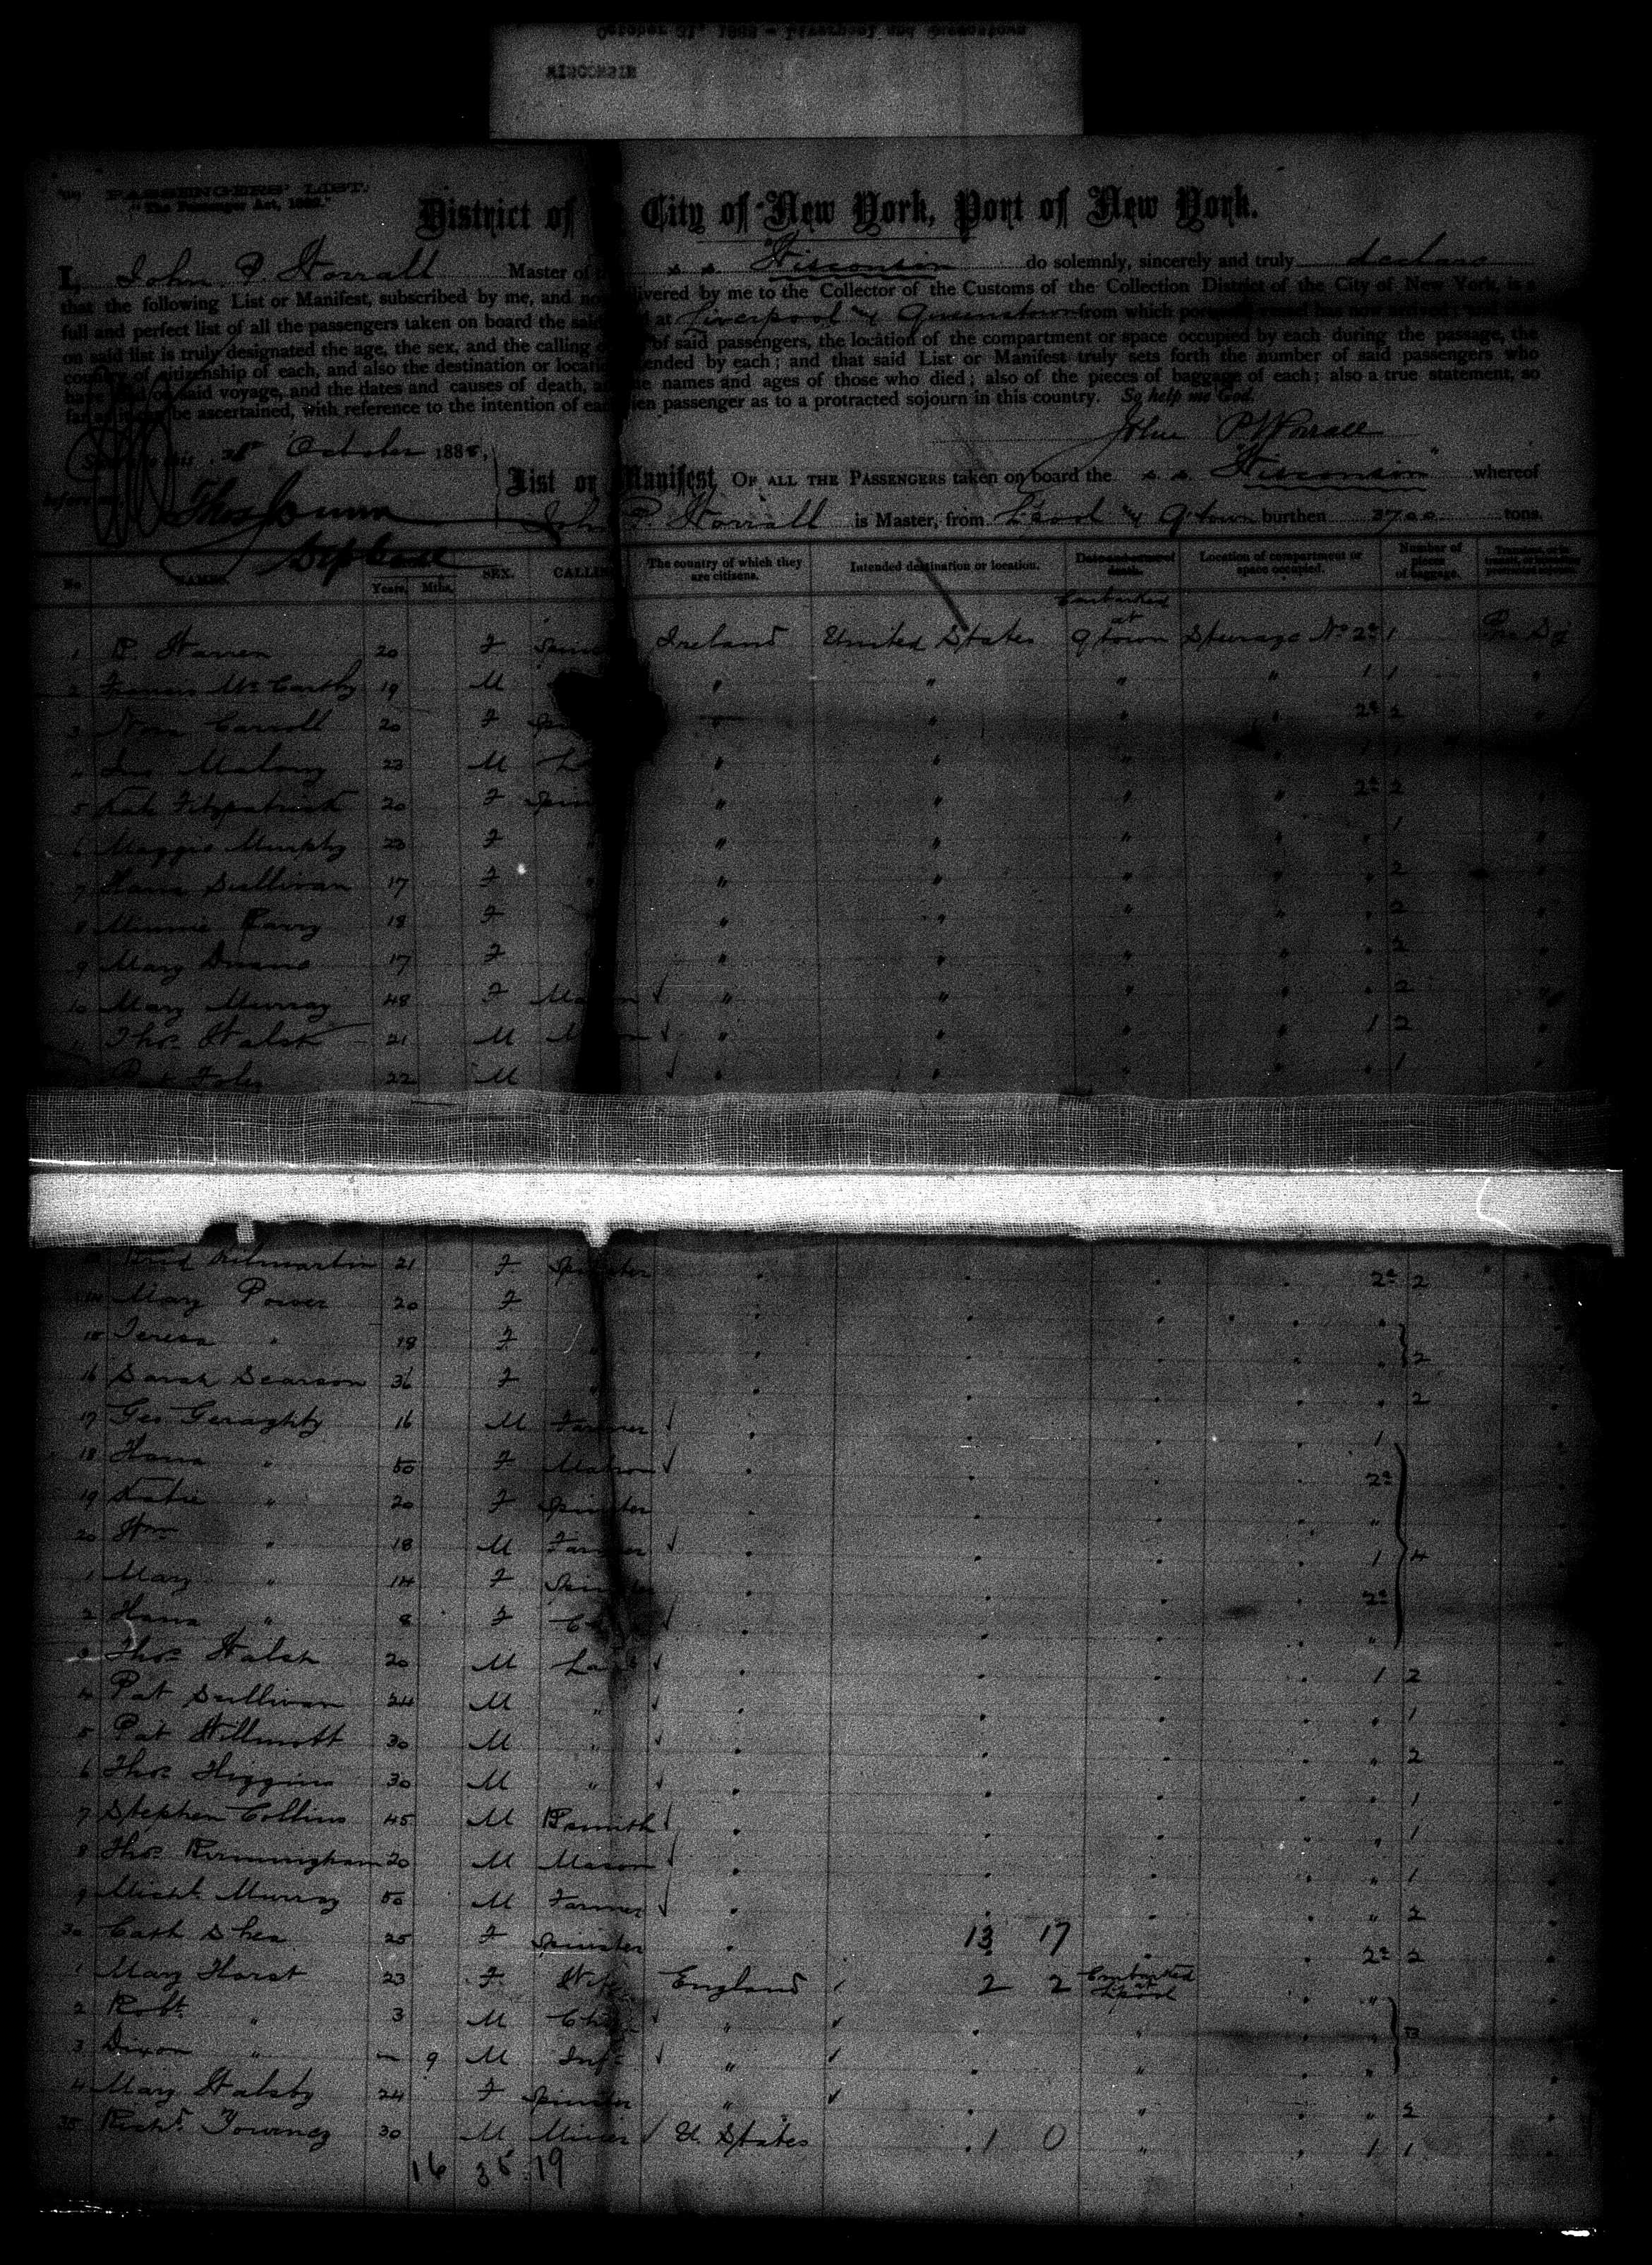 WISCONSIN
PASSENGERS' LIST.
"The Passenger Act, 1882."
District of City of New York, Port of New York.
I, John P. Worrall Master of s. s. "Wisconsin" do solemnly, sincerely and truly declare
that the following List or Manifest, subscribed by me, and now delivered by me to the Collector of the Customs of the Collection District of the City of New York, is a
full and perfect list of all the passengers taken on board the said at Liverpool & Queenstown from which port vessel has now arrived;
on said list is truly designated the age, the sex, and the calling of said passengers, the location of the compartment or space occupied by each during the passage, the
country of citizenship of each, and also the destination or location intended by each; and that said List or Manifest truly sets forth the number of said passengers who
have died on said voyage, and the dates and causes of death, and the names and ages of those who died; also of the pieces of baggage of each; also a true statement, so
far as it can be ascertained, with reference to the intention of each alien passenger as to a protracted sojourn in this country. So help me God.
John P Worrall
October 188
List or Manifest OF ALL THE PASSENGERS taken on board the s. s. "Wisconsin" whereof
John P. Worrall is Master, from L'pool & Q'town burthen 3700 tons.
No NAMES. Years. Mths. SEX. CALLING The country of which they are citizens. Intended destination or location. Date and cause of death. Location of compartment or space occupied. Number of pieces of baggage.
Embarked at
1 B. Warren 20 F Spin Ireland United States Q'town Steerage No 2a 1
2 Francis McCarthy 19 M " " " " 1 1 "
3 Nora Carroll 20 F Spin " " " " 2a 2 "
4 Jno Malony 23 M La " " " " 1 1
5 Kate Fitzpatrick 20 F Spin " " " " 2a 2 "
6 Maggie Murphy 23 F " " " " " 1 "
7 Hana Sullivan 17 F " " " " " 2 "
8 Minnie Barry 18 F " " " " 2 "
9 Mary Duane 17 F " " " " 2 "
10 Mary Murray 48 F Ma n " " " " " 2 "
11 Thos Walsh 21 M M n " " " " 1 2 "
Pat Foley 22 M " " " " " 1 "
Brid Kilmartin 21 F Spinster " " " " 2a 2 "
14 Mary Power 20 F " " " " "
15 Teresa " 18 F " " " " " " 2
16 Sarah Scarson 36 F " " " " " " 2
17 Geo Geraghty 16 M Farmer " " " " 1
18 Hana " 50 F Matron " " " " 2a
19 Katie " 20 F Spinster " " " " "
20 Wm " 18 M Farmer " " " " 1 4
1 Mary " 14 F Spinster " " " " 2a
2 Hana " 8 F Ch " " " " "
3 Thos Walsh 20 M Lab " " " " 1 2
4 Pat Sullivan 24 M " " " " " " 1
5 Pat Willmott 30 M " " " " " " 2
6 Thos Higgins 30 M " " " " " " 1
7 Stephen Collins 45 M Bsmith " " " " " 1
8 Thos Birmingham 20 M Mason " " " " " 1
9 Michl Murray 50 M Farmer " " " " " 2
30 Cath Shea 25 F Spinster " 13 17 " " 2a 2
1 Mary Horst 23 F Wife England 2 2 Embarked at L'pool " "
2 Robt " 3 M Ch " " " " " 3
3 Dixon " – 9 M Inft " " " "
4 Mary Walsby 24 F Spinster " " " " 2
35 Richd Towney 30 M Miner U. States 1 0 " " 1 1
16 35 19